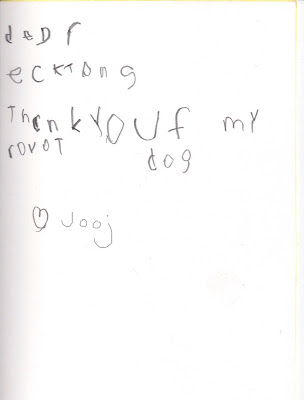 deDr
eckTong
ThenkYOUf my
rovoT dog
♡ Jooj